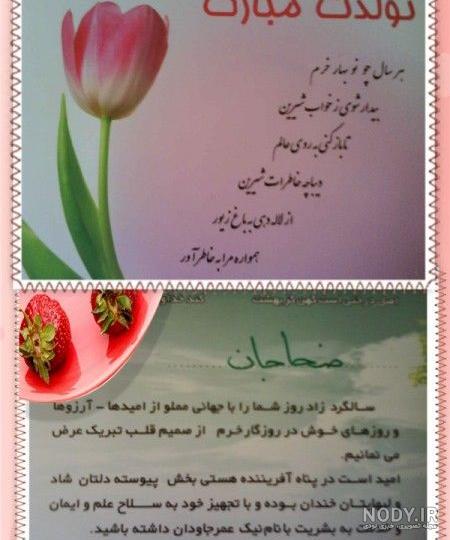 تولدت مبارک
هر سال چو نو بهار خرم
بیدار شوی ز خواب شیرین
تا باز کنی به روی عالم
دیباچه خاطرات شیرین
از لاله دهی به باغ زیور
همواره مرا به خاطر آور
ضحاجان
سالگرد زاد روز شما را با جهانی مملو از امیدها – آرزوها
و روزهای خوش در روزگار خرم از صمیم قلب تبریک عرض
می نمائیم.
امید است در پناه آفریننده هستی بخش پیوسته دلتان شاد
و لبهایتان خندان بوده و با تجهیز خود به سلاح علم و ایمان
و خدمت به بشریت با نام نیک عمر جاودان داشته باشید.
NODY.IR